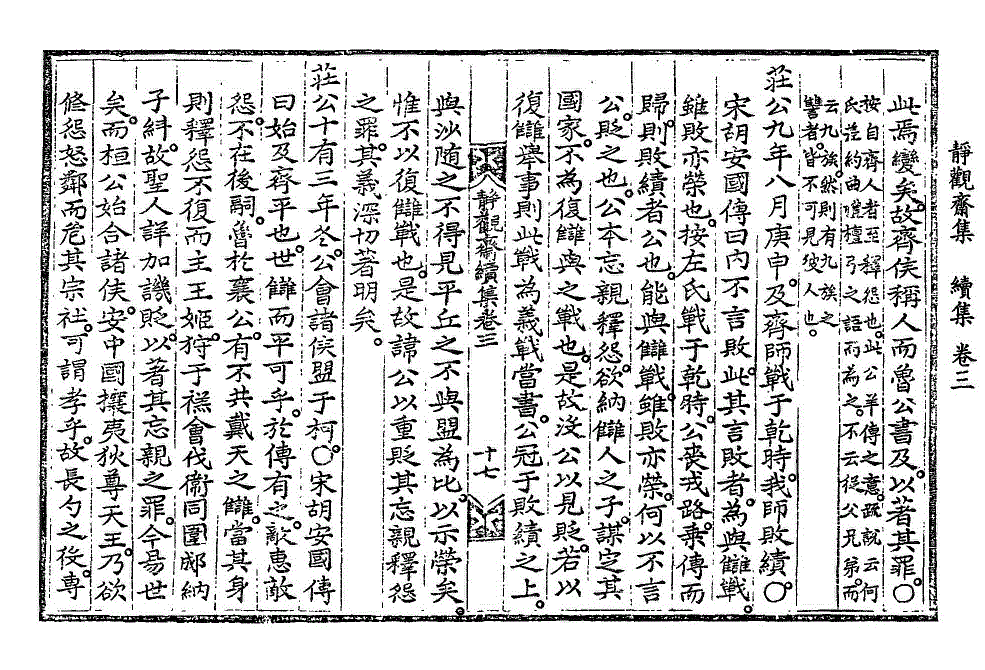 靜觀齋集　續集　卷三
此焉變矣。故齊侯稱人而魯公書及。以著其罪。○
按自齊人者至釋怨也。此公羊傳之意。疏說云何
氏范約曲禮檀弓之語而爲之。不云從父兄弟。而
云九族。然則有九族之
讐者。皆不可見彼人也。
莊公九年八月庚申。及齊師戰于乾時。我師敗績。○
宋胡安國傳曰內不言敗。此其言敗者。爲與讎戰。
雖敗亦榮也。按左氏戰于乾時。公喪戎路。乘傳而
歸。則敗績者公也。能與讎戰。雖敗亦榮。何以不言
公。貶之也。公本忘親釋怨。欲納讎人之子。謀定其
國家。不爲復讎與之戰也。是故沒公以見貶。若以
復讎擧事則此戰爲義戰。當書公冠于敗績之上。
靜觀齋續集卷三
十七
與沙隨之不得見平丘之不與盟爲比。以示榮矣。
惟不以復讎戰也。是故諱公以重貶其忘親釋怨
之罪。其義深切著明矣。
莊公十有三年冬。公會諸侯盟于柯。○宋胡安國傳
曰始及齊平也。世讎而平可乎。於傳有之。敵惠敵
怨。不在後嗣。魯於襄公。有不共戴天之讎。當其身
則釋怨不復而主王姬。狩于禚會伐衞同圍郕納
子糾。故聖人詳加譏貶。以著其忘親之罪。今易世
矣。而桓公始合諸侯。安中國攘夷狄尊天王。乃欲
修怨怒鄰而危其宗社。可謂孝乎。故長勺之役專